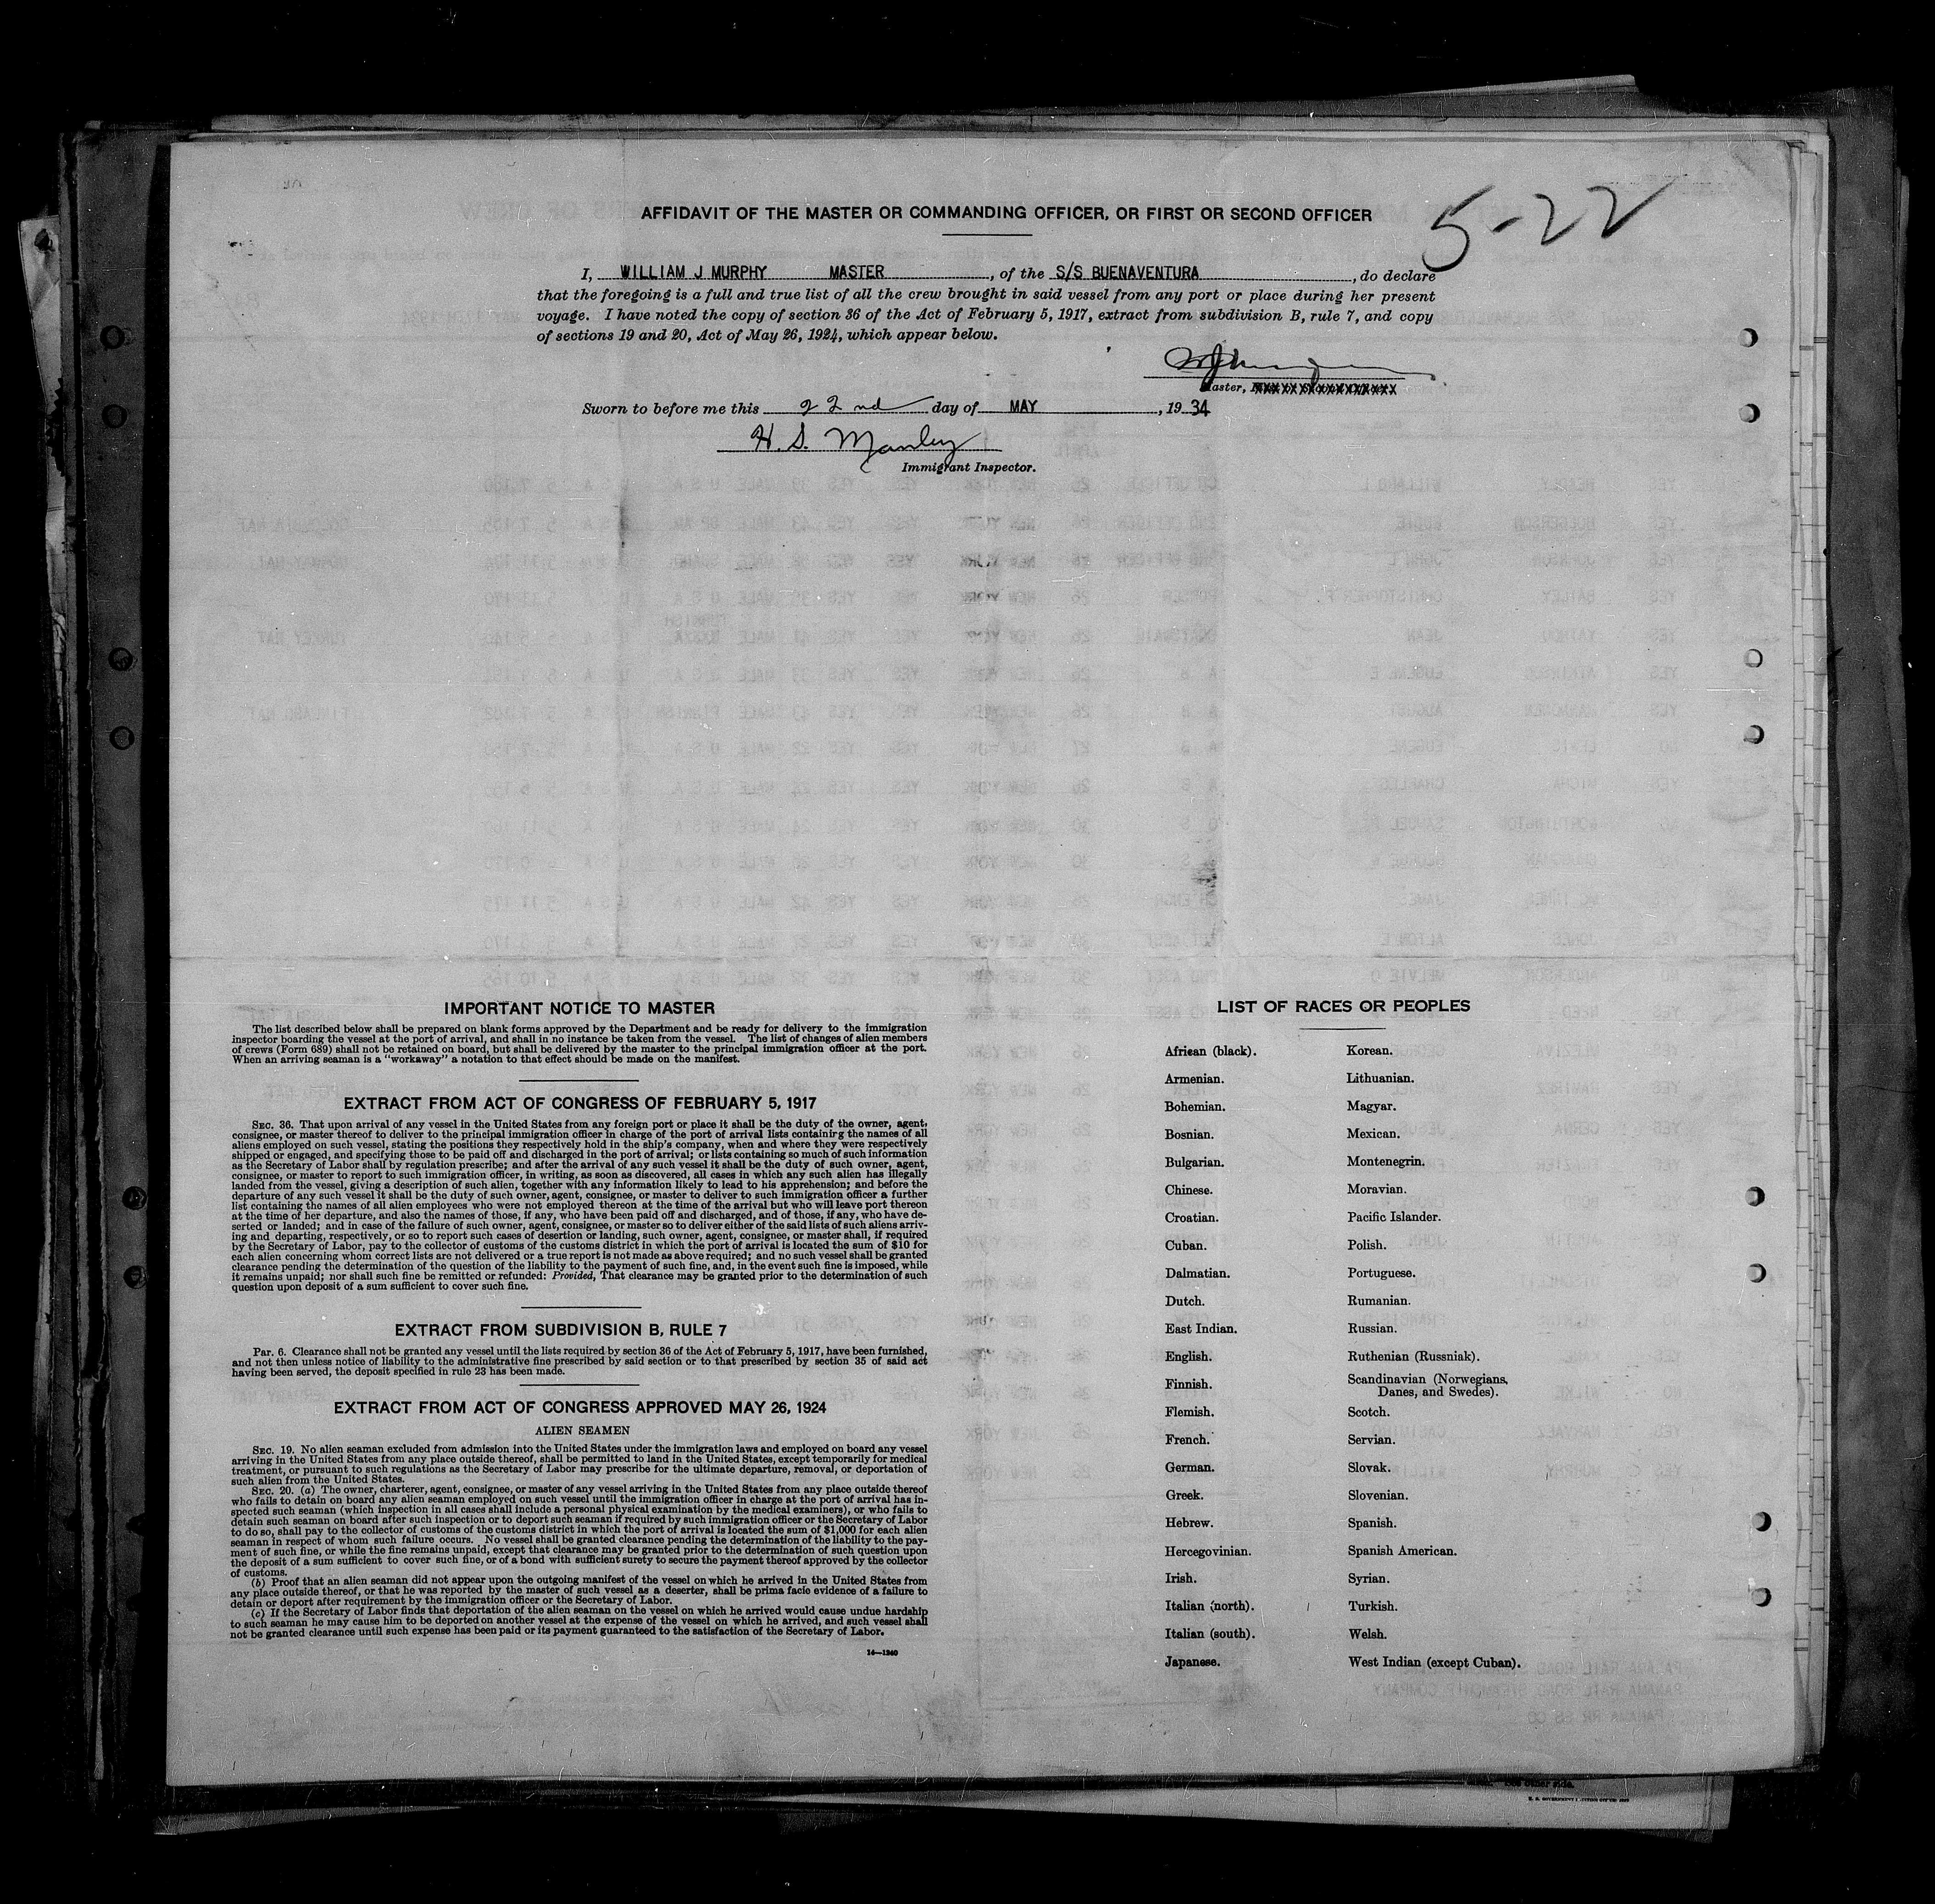 5-22
AFFIDAVIT OF THE MASTER OR COMMANDING OFFICER, OR FIRST OR SECOND OFFICER
I, WILLIAM J MURPHY MASTER, of the S/S BUENAVENTURA, do declare
that the foregoing is a full and true list of all the crew brought in said vessel from any port or place during her present
voyage. I have noted the copy of section 36 of the Act of February 5, 1917, extract from subdivision B, rule 7, and copy
of sections 19 and 20, Act of May 26, 1924, which appear below.
Master,
Sworn to before me this 22nd day of MAY, 1934
H. S. Manley
Immigrant Inspector.
IMPORTANT NOTICE TO MASTER
The list described below shall be prepared on blank forms approved by the Department and be ready for delivery to the immigration
inspector boarding the vessel at the port of arrival, and shall in no instance be taken from the vessel. The list of changes of alien members
of crews (Form 689) shall not be retained on board, but shall be delivered by the master to the principal immigration officer at the port.
When an arriving seaman is a "workaway" a notation to that effect should be made on the manifest.
EXTRACT FROM ACT OF CONGRESS OF FEBRUARY 5, 1917
SEC. 36. That upon arrival of any vessel in the United States from any foreign port or place it shall be the duty of the owner, agent,
consignee, or master thereof to deliver to the principal immigration officer in charge of the port of arrival lists containing the names of all
aliens employed on such vessel, stating the positions they respectively hold in the ship's company, when and where they were respectively
shipped or engaged, and specifying those to be paid off and discharged in the port of arrival; or lists containing so much of such information
as the Secretary of Labor shall by regulation prescribe; and after the arrival of any such vessel it shall be the duty of such owner, agent,
consignee, or master to report to such immigration officer, in writing, as soon as discovered, all cases in which any such alien has illegally
landed from the vessel, giving a description of such alien, together with any information likely to lead to his apprehension; and before the
departure of any such vessel it shall be the duty of such owner, agent, consignee, or master to deliver to such immigration officer a further
list containing the names of all alien employees who were not employed thereon at the time of the arrival but who will leave port thereon
at the time of her departure, and also the names of those, if any, who have been paid off and discharged, and of those, if any, who have de-
serted or landed; and in case of the failure of such owner, agent, consignee, or master so to deliver either of the said lists of such aliens arriv-
ing and departing, respectively, or so to report such cases of desertion or landing, such owner, agent, consignee, or master shall, if required
by the Secretary of Labor, pay to the collector of customs of the customs district in which the port of arrival is located the sum of $10 for
each alien concerning whom correct lists are not delivered or a true report is not made as above required; and no such vessel shall be granted
clearance pending the determination of the question of the liability to the payment of such fine, and, in the event such fine is imposed, while
it remains unpaid; nor shall such fine be remitted or refunded: Provided, That clearance may be granted prior to the determination of such
question upon deposit of a sum sufficient to cover such fine.
EXTRACT FROM SUBDIVISION B, RULE 7
Par. 6. Clearance shall not be granted any vessel until the lists required by section 36 of the Act of February 5, 1917, have been furnished,
and not then unless notice of liability to the administrative fine prescribed by said section or to that prescribed by section 35 of said act
having been served, the deposit specified in rule 23 has been made.
EXTRACT FROM ACT OF CONGRESS APPROVED MAY 26, 1924
ALIEN SEAMEN
SEC. 19. No alien seaman excluded from admission into the United States under the immigration laws and employed on board any vessel
arriving in the United States from any place outside thereof, shall be permitted to land in the United States, except temporarily for medical
treatment, or pursuant to such regulations as the Secretary of Labor may prescribe for the ultimate departure, removal, or deportation of
such alien from the United States.
SEC. 20. (a) The owner, charterer, agent, consignee, or master of any vessel arriving in the United States from any place outside thereof
who fails to detain on board any alien seaman employed on such vessel until the immigration officer in charge at the port of arrival has in-
spected such seaman (which inspection in all cases shall include a personal physical examination by the medical examiners), or who fails to
detain such seaman on board after such inspection or to deport such seaman if required by such immigration officer or the Secretary of Labor
to do so, shall pay to the collector of customs of the customs district in which the port of arrival is located the sum of $1,000 for each alien
seaman in respect of whom such failure occurs. No vessel shall be granted clearance pending the determination of the liability to the pay-
ment of such fine, or while the fine remains unpaid, except that clearance may be granted prior to the determination of such question upon
the deposit of a sum sufficient to cover such fine, or of a bond with sufficient surety to secure the payment thereof approved by the collector
of customs.
(b) Proof that an alien seaman did not appear upon the outgoing manifest of the vessel on which he arrived in the United States from
any place outside thereof, or that he was reported by the master of such vessel as a deserter, shall be prima facie evidence of a failure to
detain or deport after requirement by the immigration officer or the Secretary of Labor.
(c) If the Secretary of Labor finds that deportation of the alien seaman on the vessel on which he arrived would cause undue hardship
to such seaman he may cause him to be deported on another vessel at the expense of the vessel on which he arrived, and such vessel shall
not be granted clearance until such expense has been paid or its payment guaranteed to the satisfaction of the Secretary of Labor.
14—1240
LIST OF RACES OR PEOPLES
African (black).
Armenian.
Bohemian.
Bosnian.
Bulgarian.
Chinese.
Croatian.
Cuban.
Dalmatian.
Dutch.
East Indian.
English.
Finnish.
Flemish.
French.
German.
Greek.
Hebrew.
Hercegovinian.
Irish.
Italian (north).
Italian (south).
Japanese.
Korean.
Lithuanian.
Magyar.
Mexican.
Montenegrin.
Moravian.
Pacific Islander.
Polish.
Portuguese.
Rumanian.
Russian.
Ruthenian (Russniak).
Scandinavian (Norwegians,
Danes, and Swedes).
Scotch.
Servian.
Slovak.
Slovenian.
Spanish.
Spanish American.
Syrian.
Turkish.
Welsh.
West Indian (except Cuban).